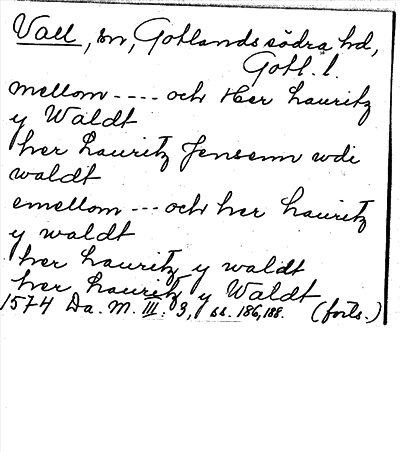 Vall, sn, Gotlands södra hd,
Gotl. l.
mellom ---- och Her Lauritz
y Waldt
her Lauritz Jensenn udi
waldt
emellom --- och her Lauritz
y waldt
her Lauritz y waldt
her Lauritz y Waldt
1574 Da. M. III. 3, ss. 186, 188. (forts.)